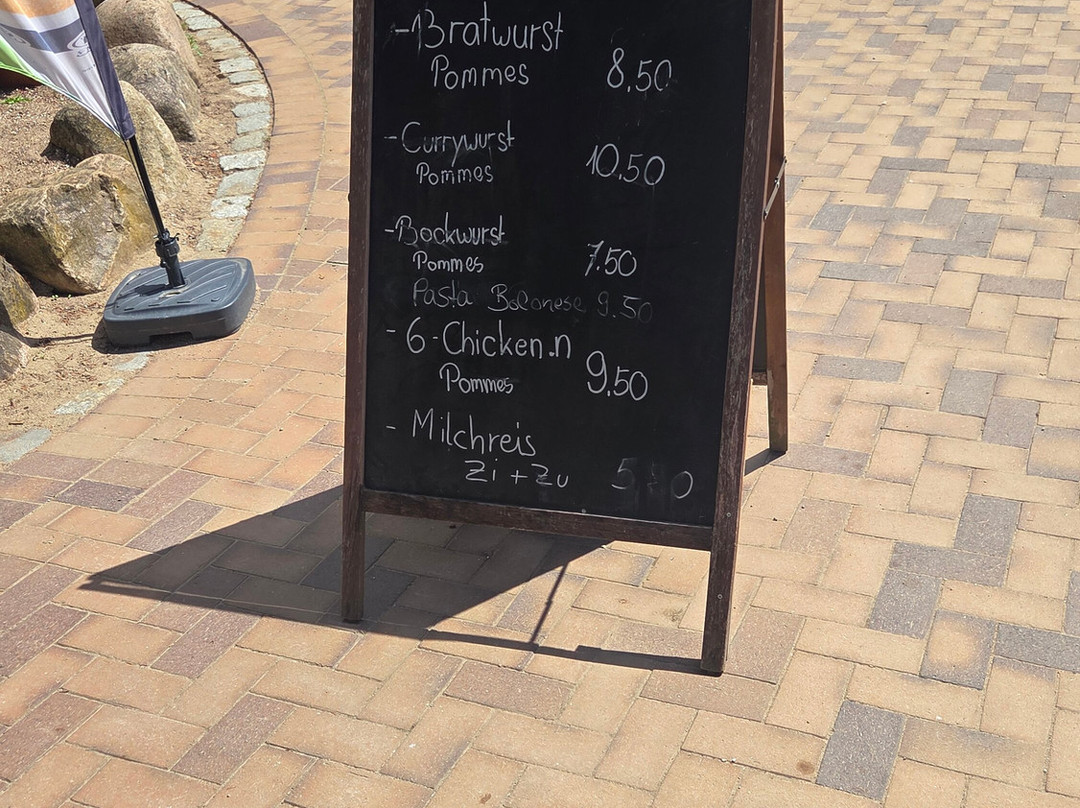 - Bratwurst
Pommes 8,50
- Currywurst
Pommes 10.50
- Bockwurst
Pommes 7.50
Pasta Bolonese 9.50
- 6-Chicken.n
Pommes 9,50
- Milchreis
Zi + Zu